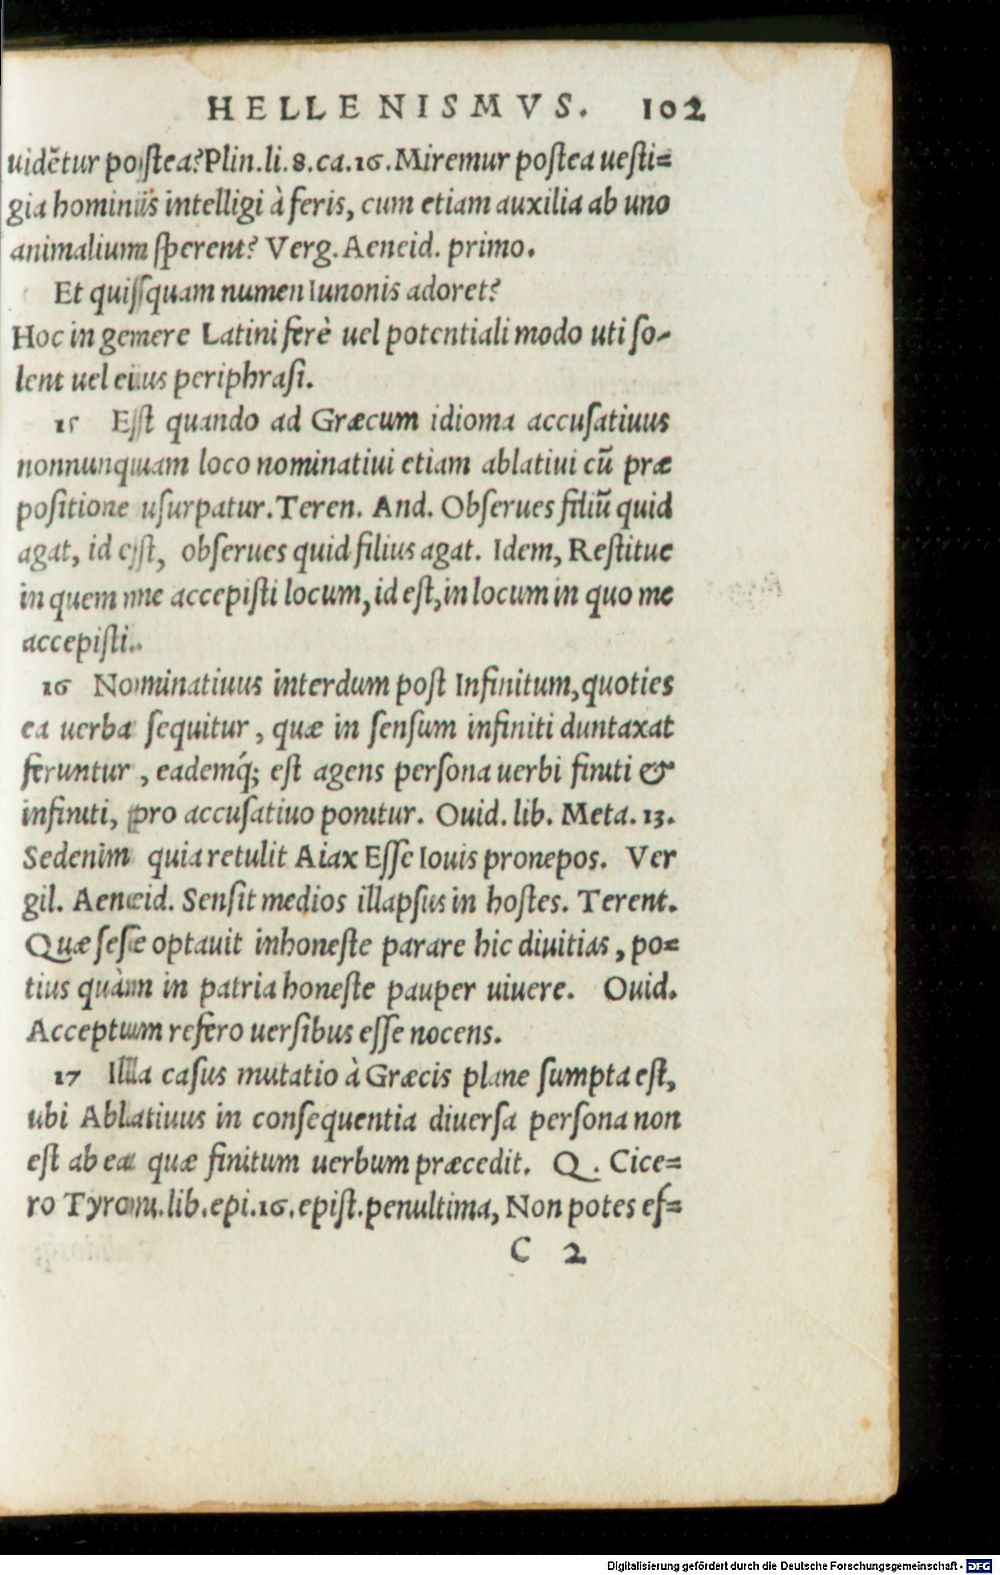 HELLENISMVS. 102
uidẽtur postea? Plin. li. 8. ca. 16. Miremur postea uesti=
gia hominis intelligi à feris, cum etiam auxilia ab uno
animalium sperent? Verg. Aeneid. primo.
Et quisquam numen Iunonis adoret?
Hoc in genere Latini ferè uel potentiali modo uti so-
lent uel eius periphrasi.
15 Est quando ad Græcum idioma accusatiuus
nonnunquam loco nominatiui etiam ablatiui cũ præ
positione usurpatur. Teren. And. Obserues filiũ quid
agat, id est, obserues quid filius agat. Idem, Restitue
in quem me accepisti locum, id est, in locum in quo me
accepisti.
16 Nominatiuus interdum post Infinitum, quoties
ea uerba sequitur, quæ in sensum infiniti duntaxat
feruntur, eademq́; est agens persona uerbi finiti &
infiniti, pro accusatiuo ponitur. Ouid. lib. Meta. 13.
Sedenim quia retulit Aiax Esse Iouis pronepos. Ver
gil. Aeneid. Sensit medios illapsus in hostes. Terent.
Quæ sese optauit inhoneste parare hic diuitias, po=
tius quàm in patria honeste pauper uiuere. Ouid.
Acceptum refero uersibus esse nocens.
17 Illa casus mutatio à Græcis plane sumpta est,
ubi Ablatiuus in consequentia diuersa persona non
est ab ea quæ finitum uerbum præcedit. Q. Cice=
ro Tyroni. lib. epi. 16. epist. penultima, Non potes ef=
C 2
Digitalisierung gefördert durch die Deutsche Forschungsgemeinschaft - DFG